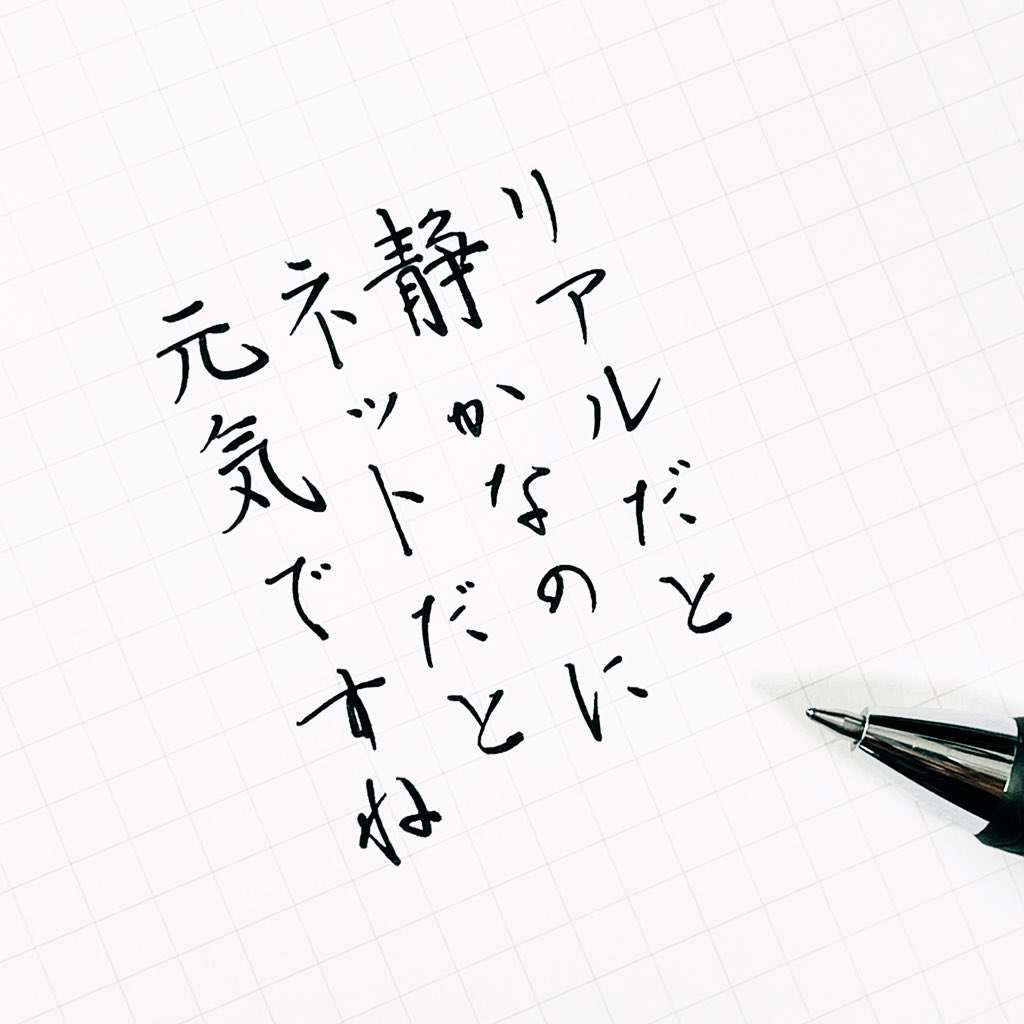 リアルだと
静かなのに
ネットだと
元気ですね